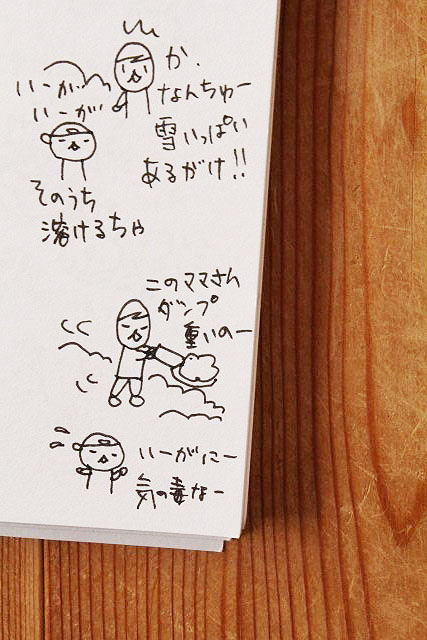 か、
なんちゅー
雪いっぱい
あるがけ!!
いーがぃ
いーがぃ
そのうち
溶けるちゃ
このママさん
ダンプ
重いのー
いーがにー
気の毒なー